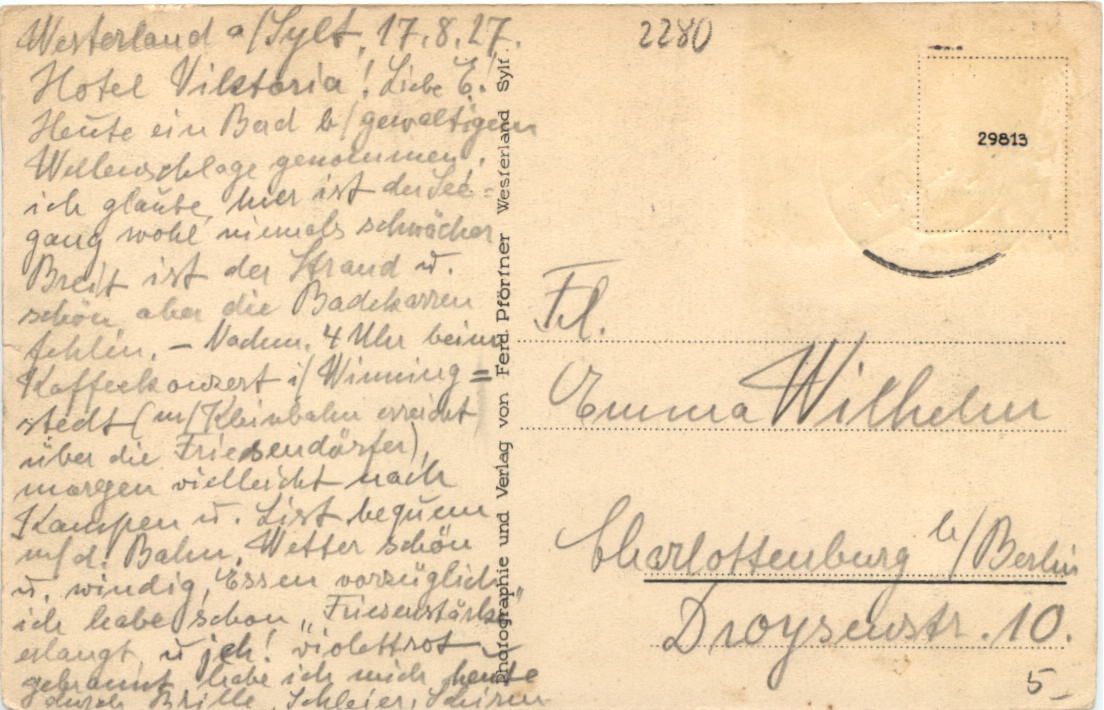 Westerland a/Sylt, 17.8.27.
Hotel Viktoria! Liebe E.!
Heute ein Bad b/gewaltigem
Wellenschlage genommen,
ich glaube, hier ist der See=
gang wohl niemals schwächer
Breit ist der Strand u.
schön, aber die Badekarren
fehlen. – Nachm. 4 Uhr beim
Kaffeekonzert i/Winning=
stedt (m/Kleinbahn erreicht
über die Friesendörfer),
morgen vielleicht nach
Kampen u. List bequem
m/d. Bahn, Wetter schön
u. windig, Essen vorzüglich,
ich habe schon „Friesenstärke"
erlangt, u ich! violettrot
gebrannt habe ich mich heute
durch Brille, Schleier, Schirm
Photographie und Verlag von Ferd. Pförtner Westerland Sylt
2280
29813
Frl.
Emma Wilhelm
Charlottenburg b/Berlin
Droysenstr. 10.
5_